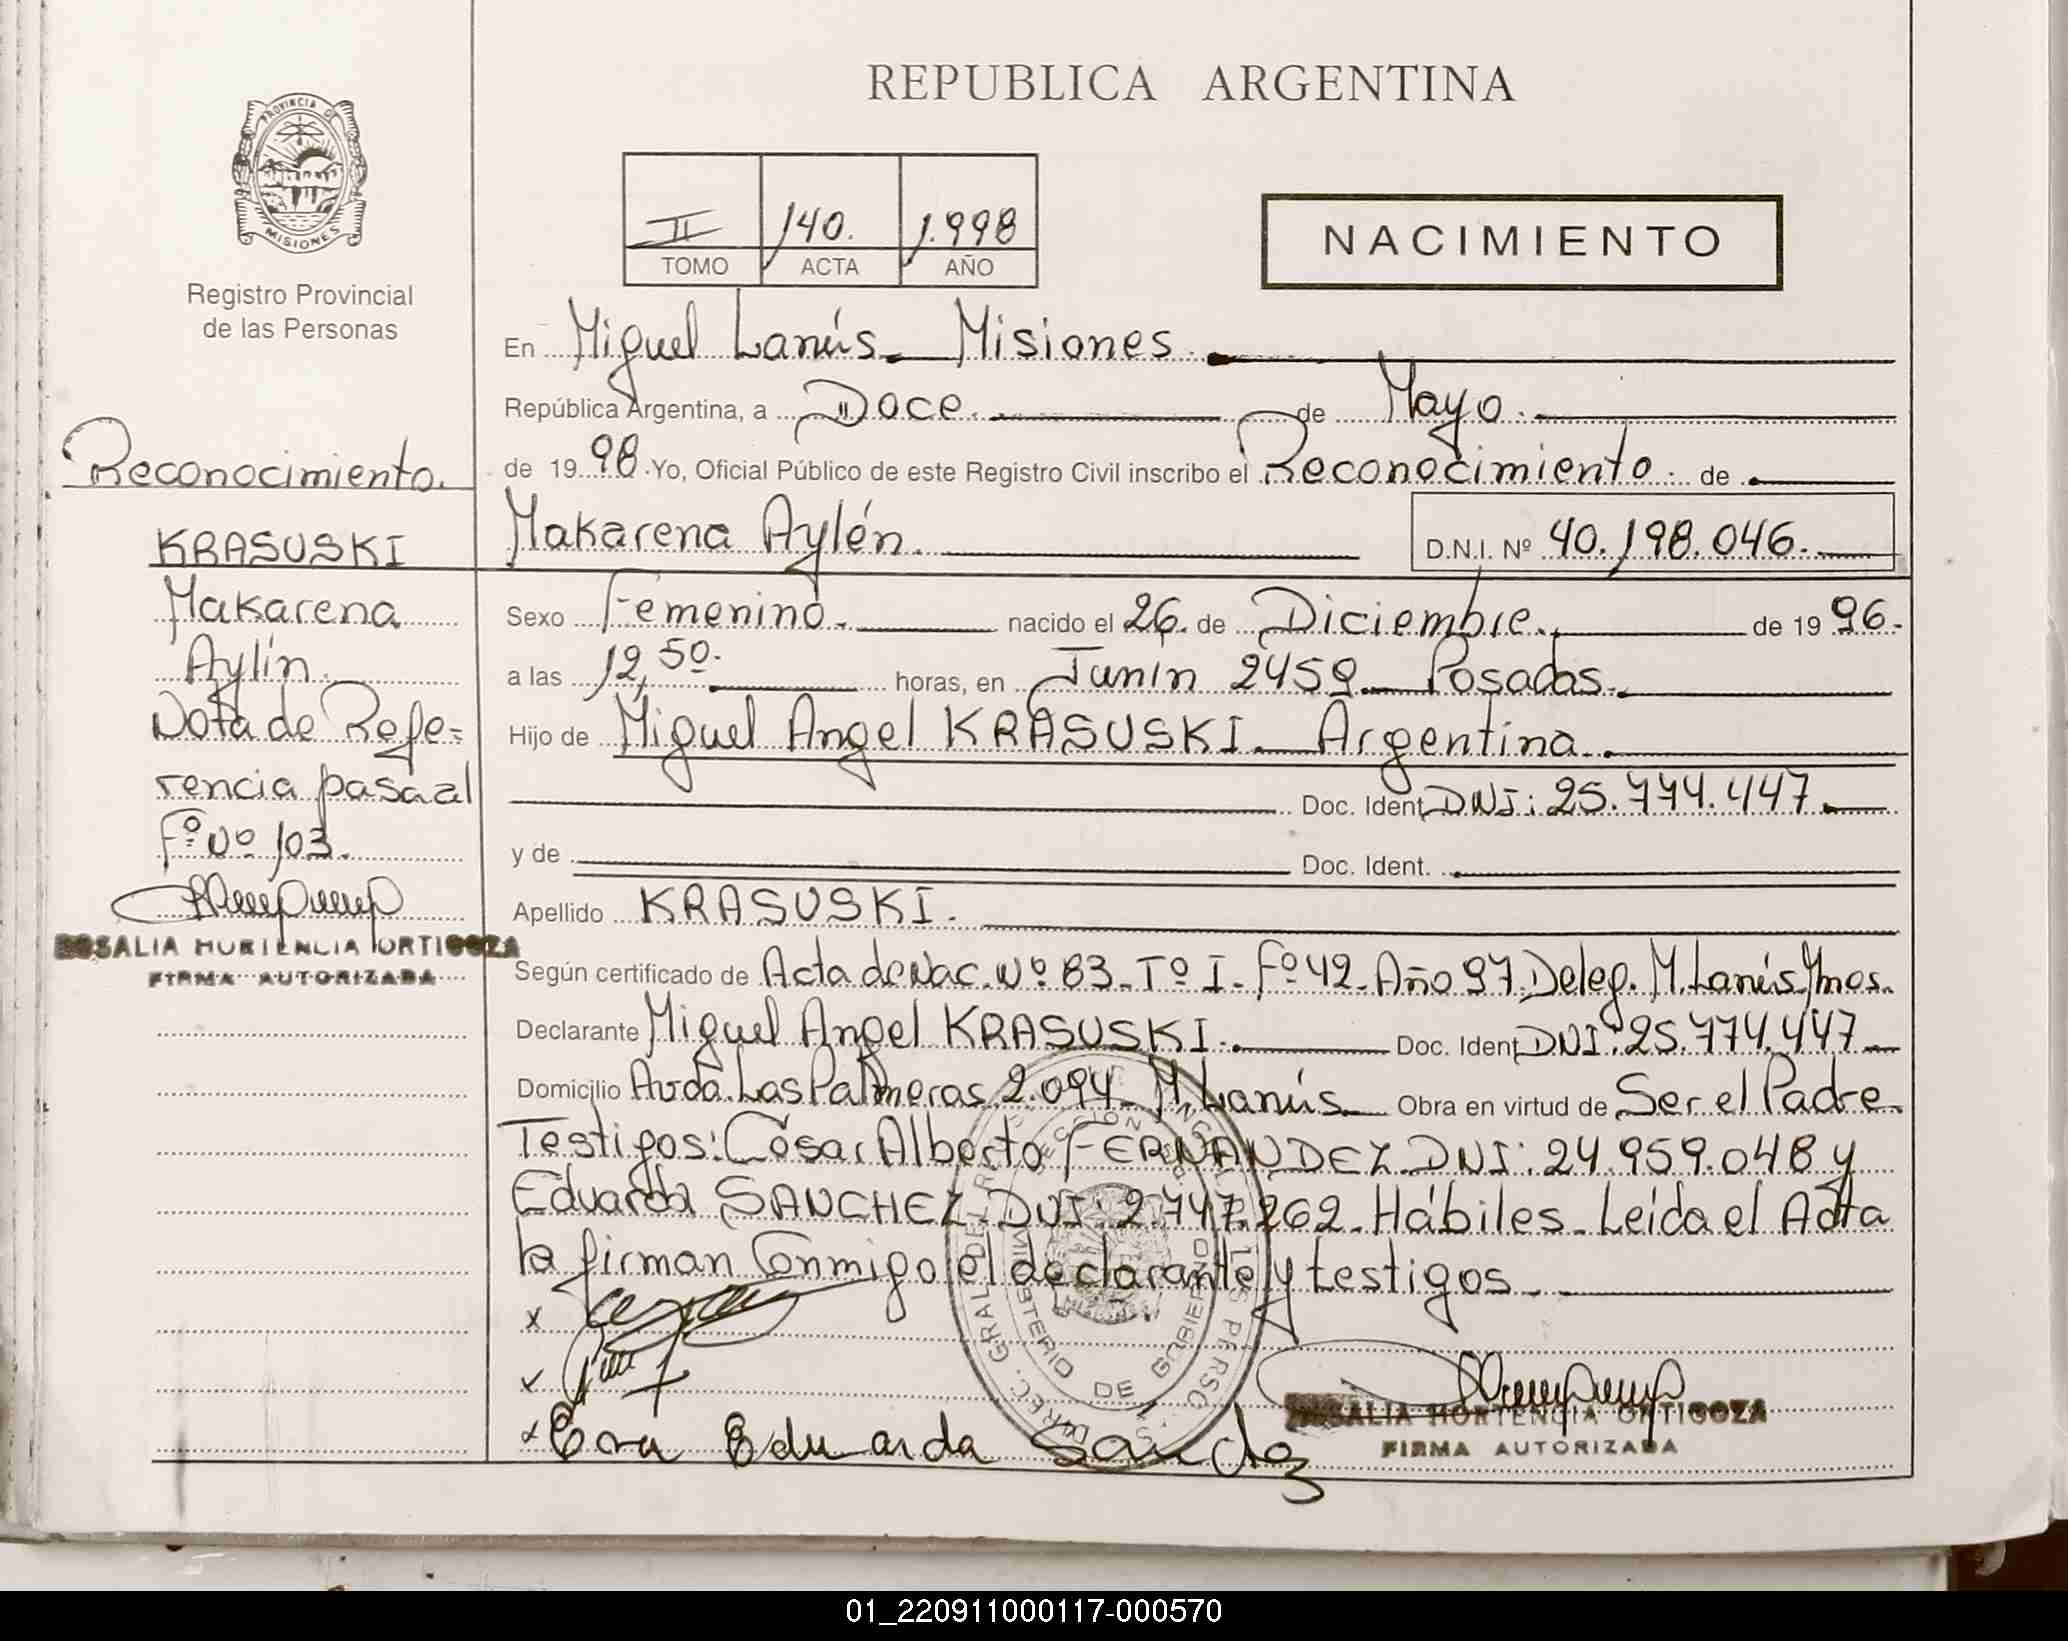 REPUBLICA ARGENTINA
PROVINCIA DE
MISIONES
Registro Provincial
de las Personas
II 140. 1.998
TOMO ACTA AÑO
NACIMIENTO
En Miguel Lanús_ Misiones.
República Argentina, a Doce. de Mayo.
de 19 98. Yo, Oficial Público de este Registro Civil inscribo el Reconocimiento. de
Makarena Aylén. D.N.I. Nº 40.198.046.
Sexo Femenino. nacido el 26. de Diciembre. de 19 96.
a las 12,50. horas, en Junin 2459_ Posadas.
Hijo de Miguel Angel KRASUSKI._ Argentina.
Doc. Ident. DNI: 25.774.447.
y de Doc. Ident.
Apellido KRASUSKI.
Según certificado de Acta de Nac. Nº 83_ Tº I_ Fº 42_ Año 97. Deleg. M. Lanús Mnes.
Declarante Miguel Angel KRASUSKI. Doc. Ident. DNI: 25.774.447
Domicilio Avda. Las Palmeras 2.094_ M. Lanús_ Obra en virtud de Ser el Padre.
Testigos: César Alberto FERNANDEZ. DNI: 24.959.048 y
Eduarda SANCHEZ. DNI: 2.747.262. Hábiles_ Leída el Acta
la firman Conmigo el declarante y testigos.
x
x Eva Eduarda Sanchez
ROSALIA HORTENCIA ORTIGOZA
FIRMA AUTORIZADA
MINISTERIO DE GOBIERNO
Reconocimiento.
KRASUSKI
Makarena
Aylín.
Nota de Refe=
rencia pasa al
Fº Nº 103.
ROSALIA HORTENCIA ORTIGOZA
FIRMA AUTORIZADA
01_220911000117-000570